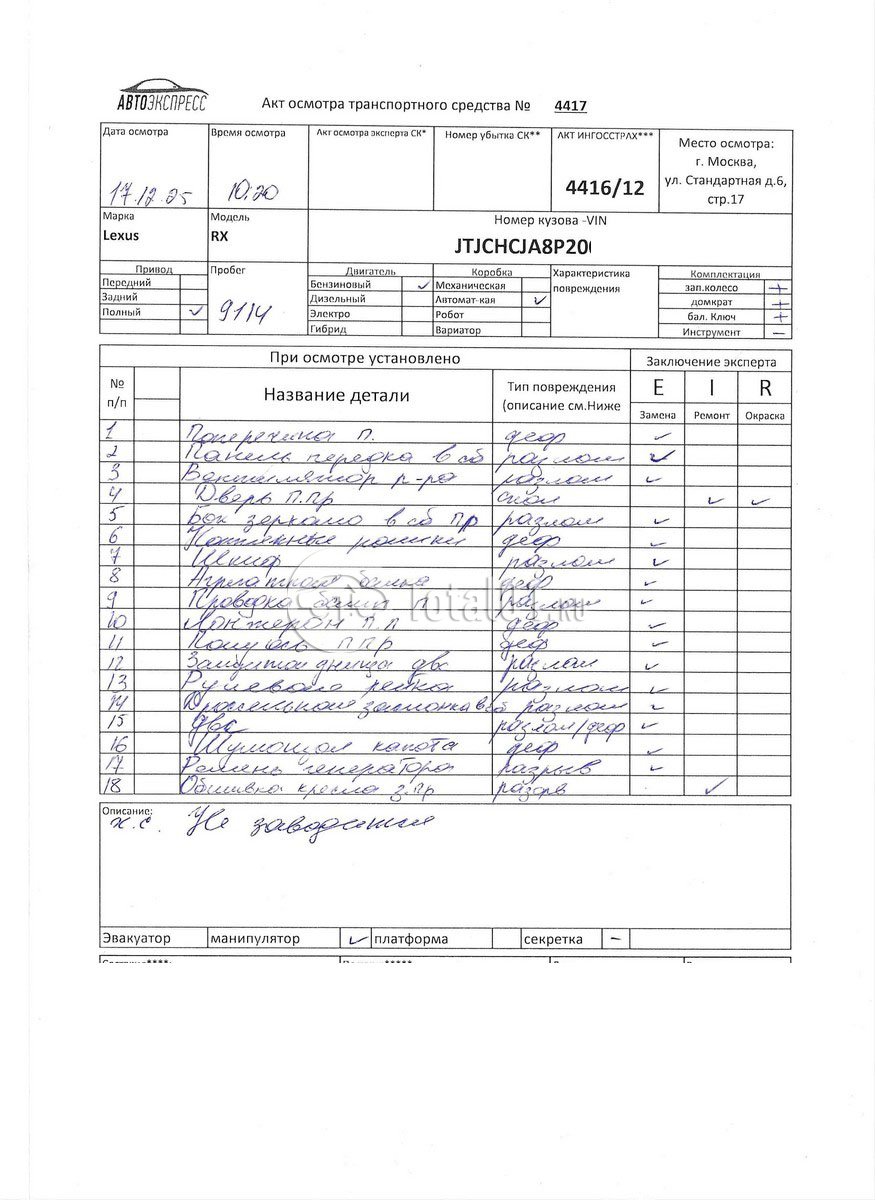 АВТОЭКСПРЕСС
Акт осмотра транспортного средства № 4417
Дата осмотра Время осмотра Акт осмотра эксперта СК* Номер убытка СК** АКТ ИНГОССТРАХ*** Место осмотра:
г. Москва,
17.12.25 10:20 4416/12 ул. Стандартная д.6,
стр.17
Марка Модель Номер кузова -VIN
Lexus RX JTJCHCJA8P20
Привод Пробег Двигатель Коробка Характеристика Комплектация
Передний Бензиновый ✓ Механическая повреждения зап.колесо +
Задний Дизельный Автомат-кая ✓ домкрат +
Полный ✓ 9114 Электро Робот бал. Ключ +
Гибрид Вариатор Инструмент –
При осмотре установлено Заключение эксперта
№ п/п Название детали Тип повреждения (описание см.Ниже E I R
Замена Ремонт Окраска
1 Поперечина П. деф ✓
2 Панель передка в сб разлом ✓
3 Вентилятор р-ра разлом ✓
4 Дверь П.Пр скол ✓ ✓
5 Бок зеркало в сб Пр разлом ✓
6 ролики деф ✓
7 Шкив разлом ✓
8 деф ✓
9 Проводка П разлом ✓
10 Лонжерон П.П деф ✓
11 Полуось П Пр деф ✓
12 Защита днища двс разлом ✓
13 Рулевая рейка разлом ✓
14 Дроссельная заслонка в сб разлом ✓
15 ДВС разлом/деф ✓
16 Шумоизол капота деф ✓
17 Ремень генератора разрыв ✓
18 Обшивка кресла з.Пр разрв ✓
Описание:
х.с. Не заводится
Эвакуатор манипулятор ✓ платформа секретка –
TotalCar.RU